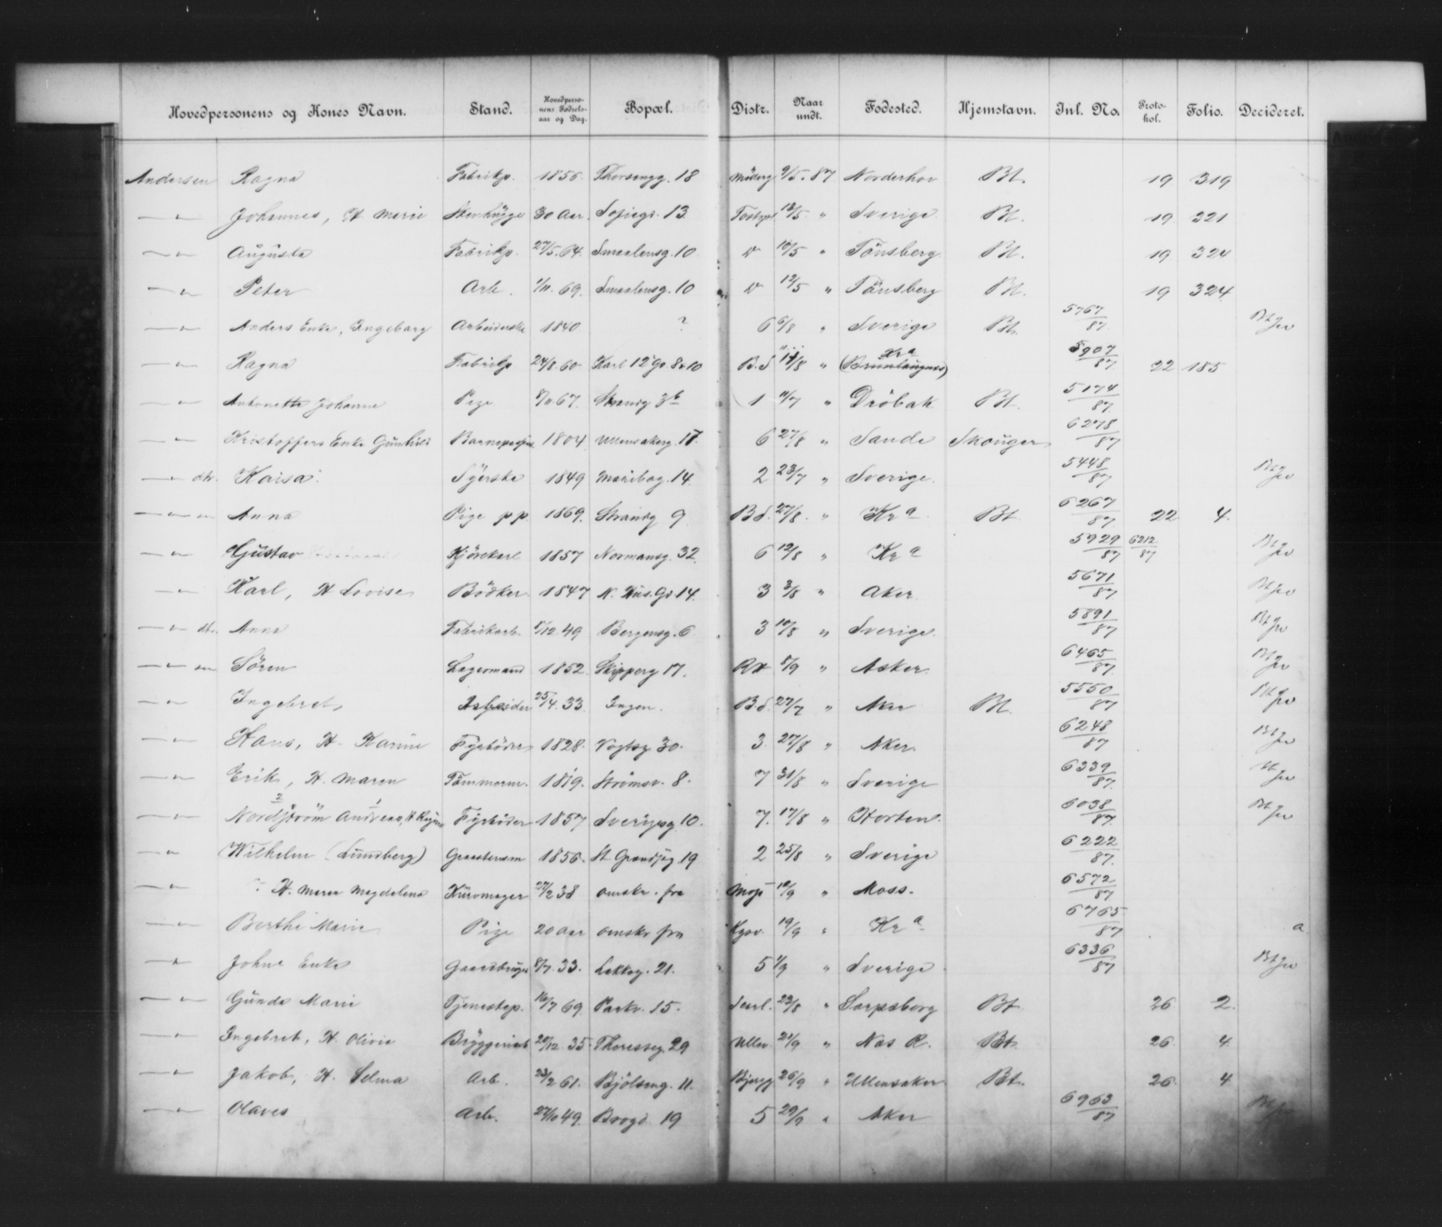 Hovedpersonens og Kones Navn. Stand. Hovedpersonens Fødselsaar og Dag. Bopæl. Distr. Naar undt. Fødested. Hjemstavn. Inl. No. Protokol. Folio. Decideret.
Andersen Ragna Fabrikp. 1856 Thorsengg. 18 9/5 87 Norderhov Bt. 19 319
Johannes, H Marie 30 Aar Sofiegd. 13 12/5 " Sverige Bt. 19 321
Augusta Fabrikp. 27/5 64. Smaalensg. 10 10/5 " Tönsberg Bt. 19 324
Peter Arb. 69. Smaalensg. 10 12/5 " Tönsberg Bt. 19 324
Anders Enke, Ingeborg 1840 ? 6 6/8 " Sverige Bt. 5767/87
Ragna Fabrikp 24/8 60 Karl 12 Gd. 8-10 B.d 11/8 " Kr a 5907/87 22 185
Antonette Johanne Pige 67. Strandg 3 b 1 " Dröbak Bt. 5174/87
Kristoffers Enke 1804 Ullensakerg. 17 6 27/8 " Sande Skouger 6278/87
Kaisa Syerske 1849 Maribog. 14 2 23/7 " Sverige. 5448/87
Anna Pige pp 1869. Strandg 9 B d. 27/8 " Kr a Bt 6267/87 22 4.
Gustav Kjörekarl 1857 Normansg. 32 6 12/8 " Kr a 5929/87 6212/87
Karl, H Lovise Bödker 1847 14 3 3/8 " Aker 5671/87
Anna Fabrikarb. 49 Bergensg. 6 3 10/8 " Sverige. 5891/87
Sören Lagermand 1852 Skipperg 17. 8/9 " Asker 6465/87
Ingebret, Arbeider 25/4 33 Ingen. B d. 27/7 " Aker Bt. 5550/87
Hans, H. Karine Fyrböder 1828 Vogtsg 30. 3. 27/8 " Aker. 6248/87
Erik, H. Maren Tömmerm. 1819. Strömsv. 8. 7 31/8 " Sverige 6339/87
Nordström Andreas, H Fyrböder 1857 Sverigsg 10. 7. 17/8 " Horten. 6038/87
Wilhelm (Lundberg) 1856. St. Grændseg 19 2 25/8 " Sverige 6222/87
H. Maren Magdalena 38 omskr. fra 12/9 " Moss. 6572/87
Berthe Marie Pige 20 Aar omskr fra 19/9 " Kr a 6765/87 a
Johns Enke 8/7 33. Lakkeg. 21. 5 " Sverige 6336/87
Gunda Marie Tjenestep. 16/7 69 Parkv. 15. 23/8 " Sarpsborg Bt 26 2.
Ingebret, H. Olivia Bryggeriarb 35. Theresesg 29 Ullev. 21/9 " Næs R. Bt. 26. 4.
Jakob, H. Selma Arb. 23/2 61. Bjölseng. 11. 26/9 " Ullensaker Bt. 26. 4.
Olaves Arb. 27/10 49. Borgd. 19 5 29/9 " Aker 6963/87